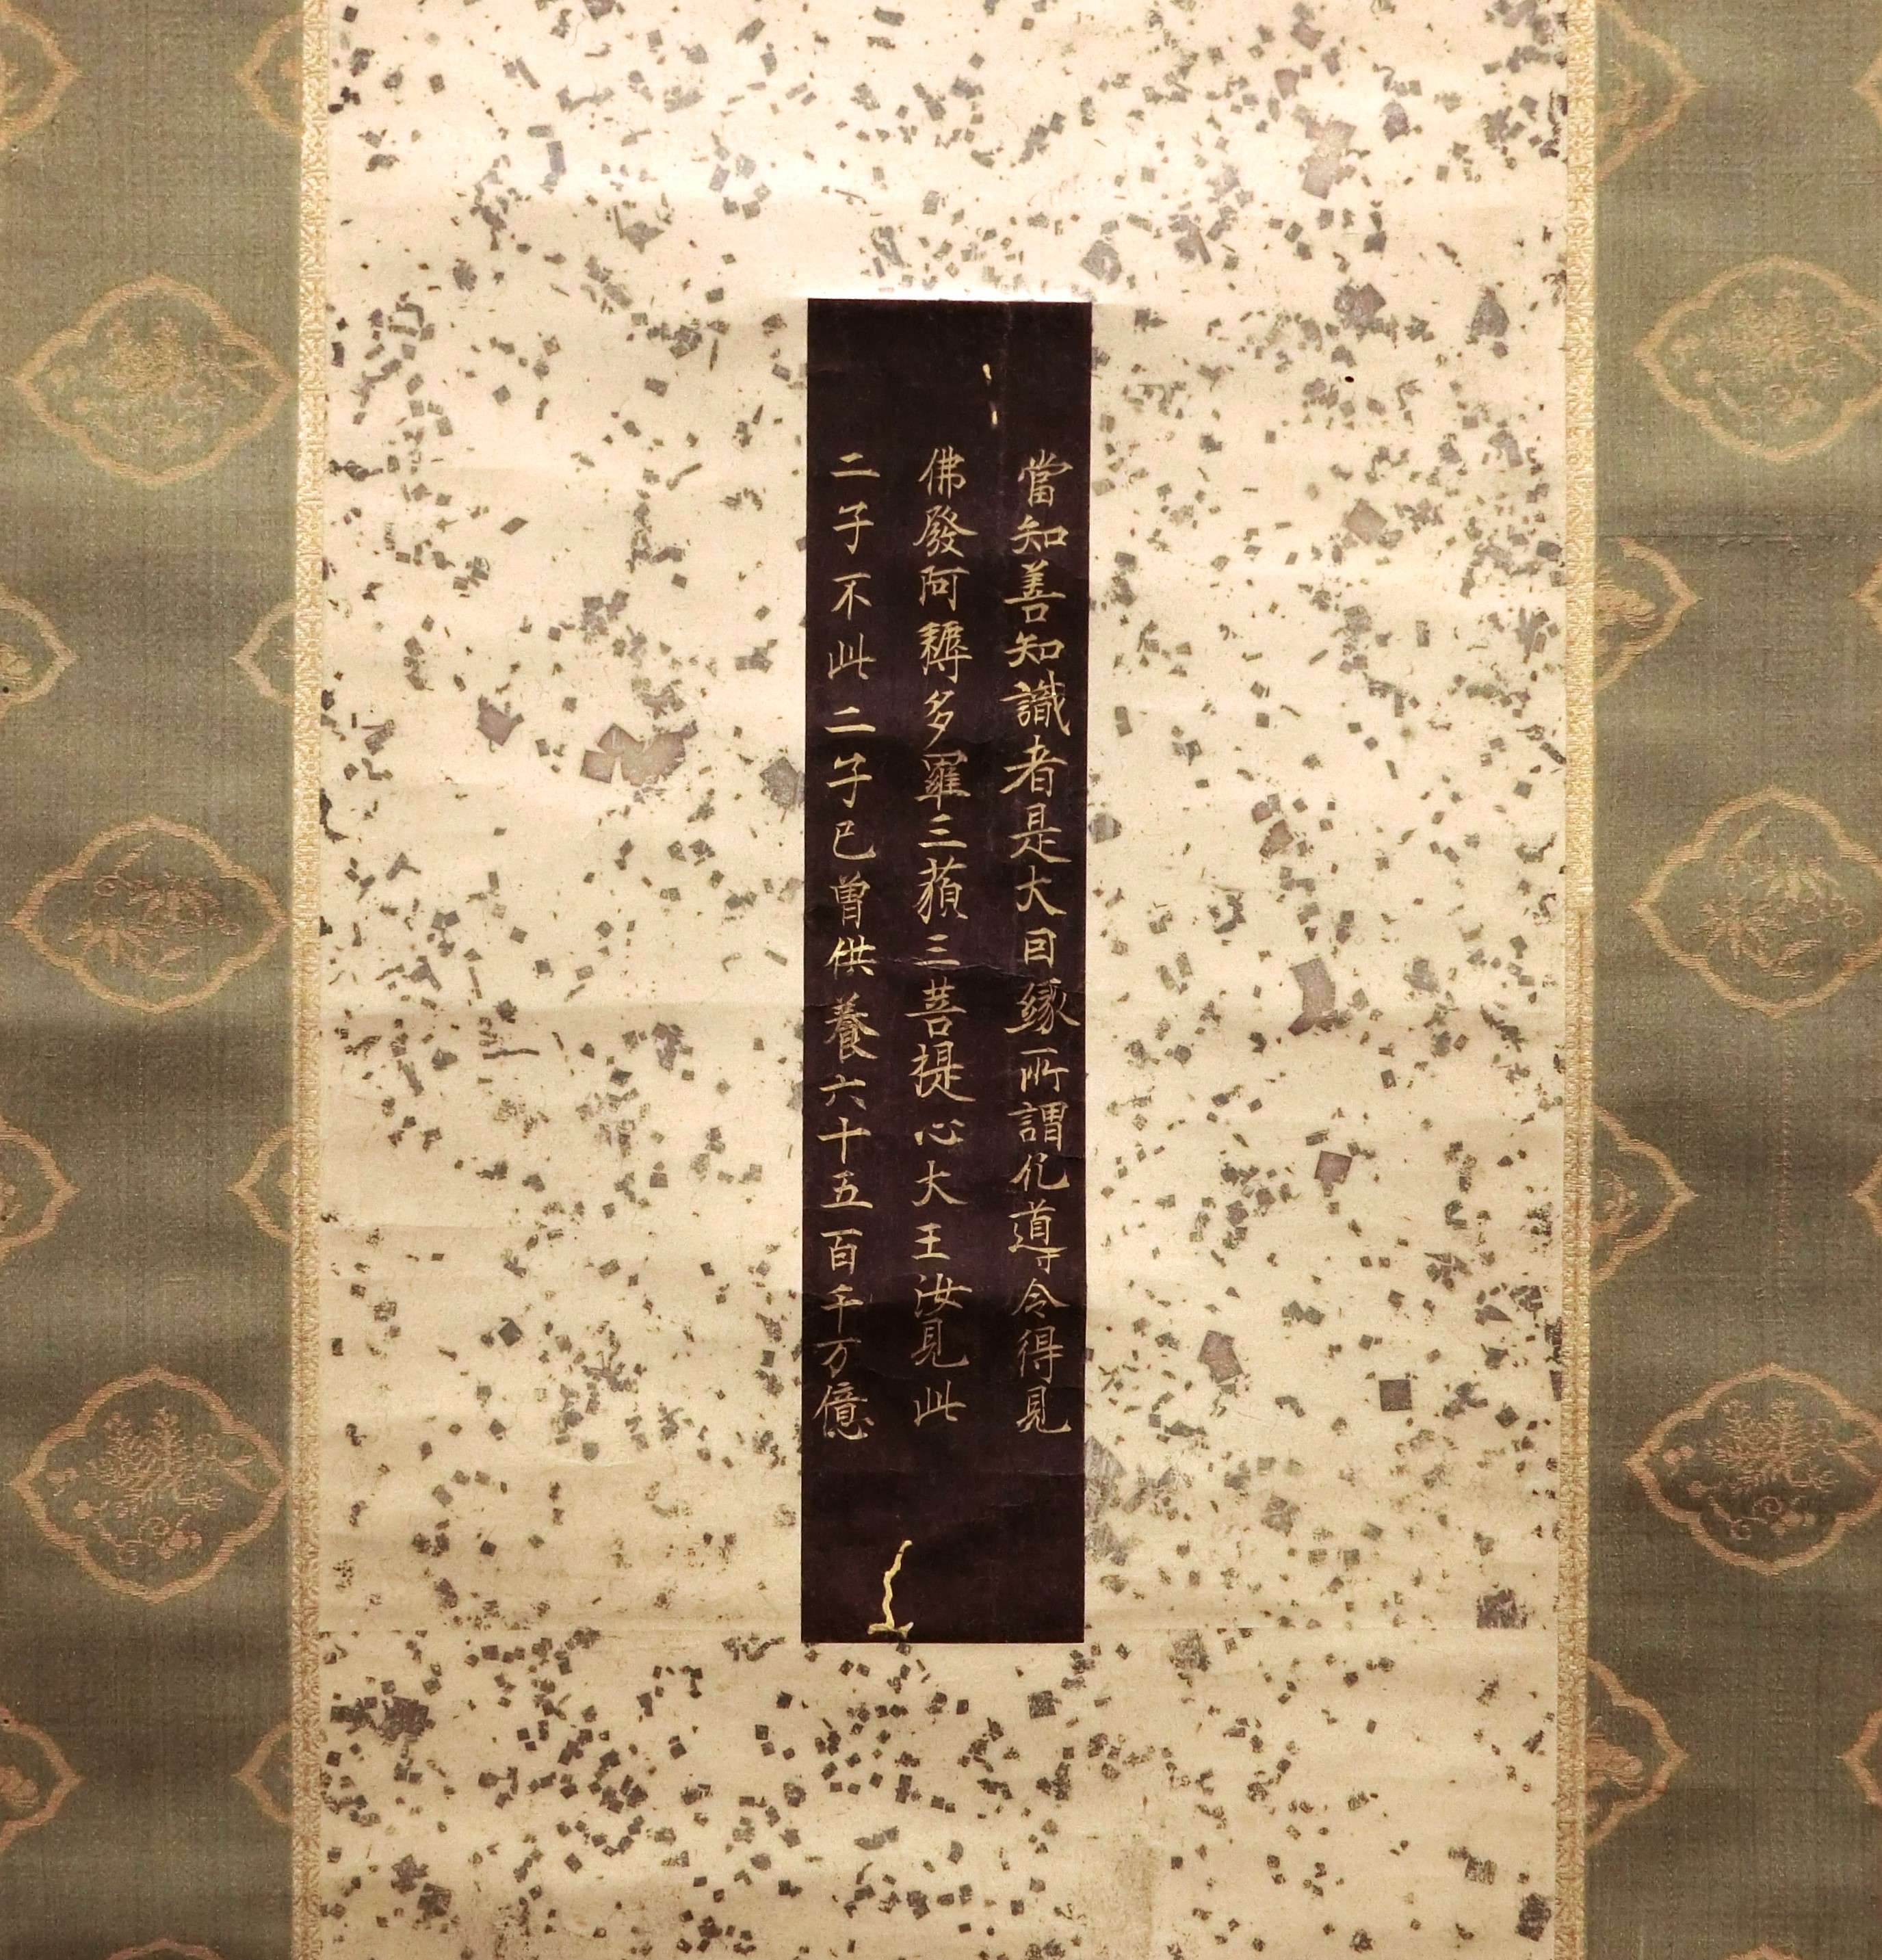 當知善知識者是大因緣所謂化導令得見
佛發阿耨多羅三藐三菩提心大王汝見此
二子不此二子已曾供養六十五百千万億